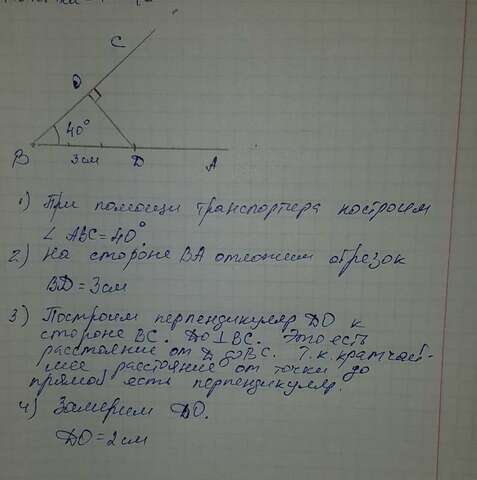 C
O
40°
B 3см D A
1) При помощи транспортира построим
∠ ABC = 40°.
2) На стороне BA отложим отрезок
BD = 3см
3) Построим перпендикуляр DO к
стороне BC. DO⊥BC. Это есть
расстояние от D до BC. Т.к. кратчай-
шее расстояние от точки до
прямой есть перпендикуляр.
4) Замерим DO.
DO = 2см